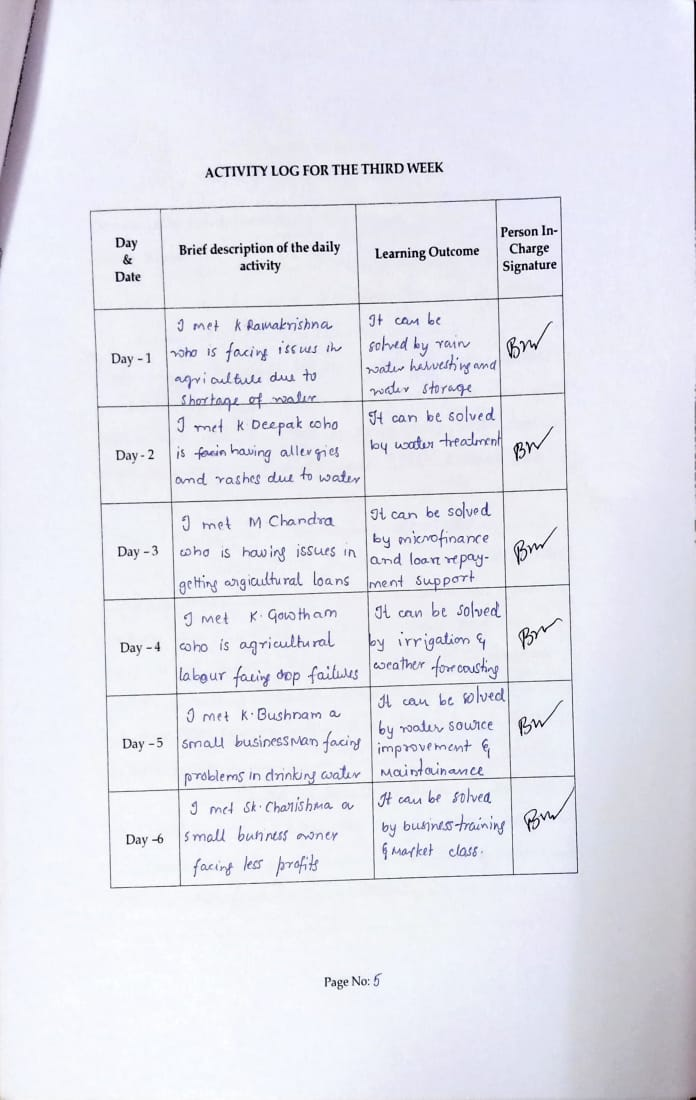 ACTIVITY LOG FOR THE THIRD WEEK
Day
&
Date
Brief description of the daily
activity
Learning Outcome
Person In-
Charge
Signature
Day - 1
I met K Ramakrishna
who is facing issues in
agriculture due to
shortage of water
It can be
solved by rain
water harvesting and
water storage
Day - 2
I met K Deepak who
is having allergies
and rashes due to water
It can be solved
by water treatment
Day - 3
I met M Chandra
who is having issues in
getting argicultural loans
It can be solved
by microfinance
and loan repay-
ment support
Day - 4
I met K. Gowtham
who is agricultural
labour facing crop failures
It can be solved
by irrigation &
weather forecasting
Day - 5
I met K. Bushnam a
small businessman facing
problems in drinking water
It can be solved
by water source
improvement &
Maintainance
Day -6
I met Sk. Charishma a
small business owner
facing less profits
It can be solved
by business training
& Market class.
Page No: 5